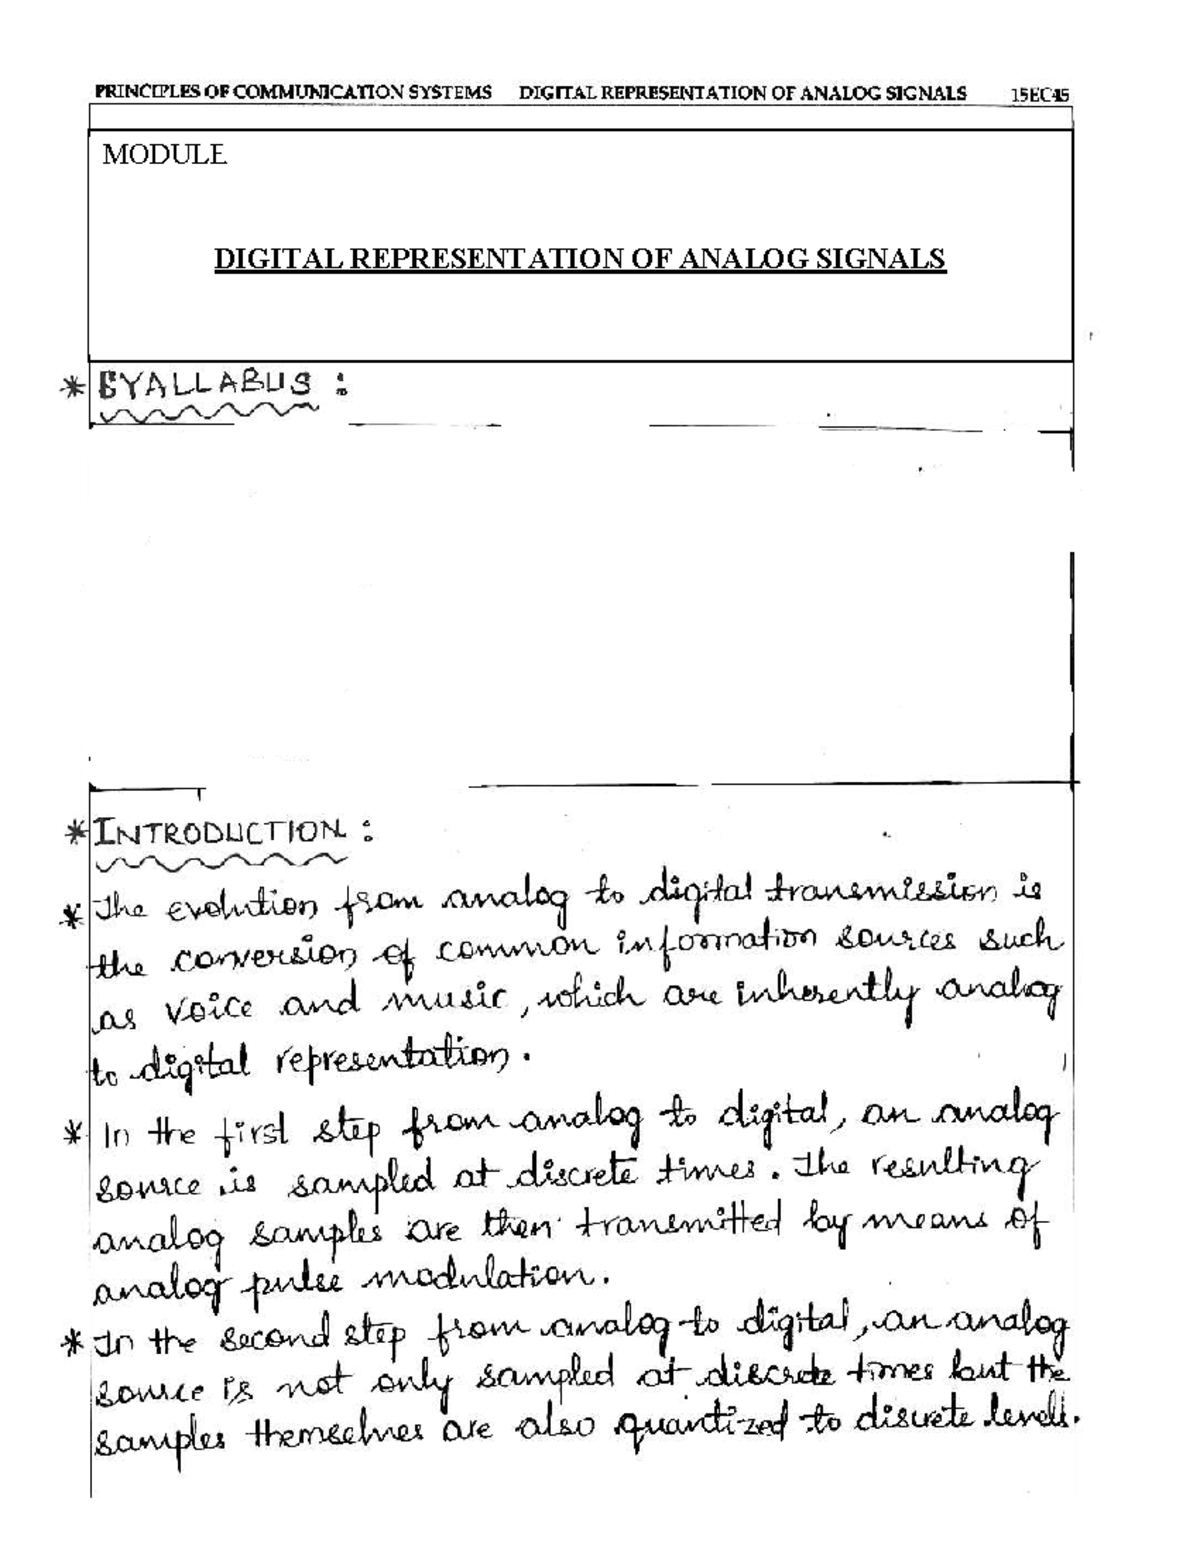 PRINCIPLES OF COMMUNICATION SYSTEMS DIGITAL REPRESENTATION OF ANALOG SIGNALS 15EC45
MODULE
DIGITAL REPRESENTATION OF ANALOG SIGNALS
* SYALLABUS :
* INTRODUCTION :
* The evolution from analog to digital transmission is
the conversion of common information sources such
as voice and music, which are inherently analog
to digital representation.
* In the first step from analog to digital, an analog
source is sampled at discrete times. The resulting
analog samples are then transmitted by means of
analog pulse modulation.
* In the second step from analog to digital, an analog
source is not only sampled at discrete times but the
samples themselves are also quantized to discrete levels.